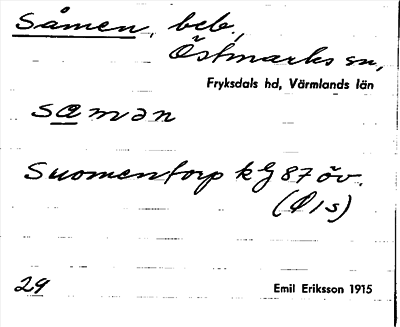 Såmen, beb.,
Östmarks sn,
Fryksdals hd, Värmlands län
sɑmən
Suomentorp kG 87 öv.
(Ö1s)
29
Emil Eriksson 1915